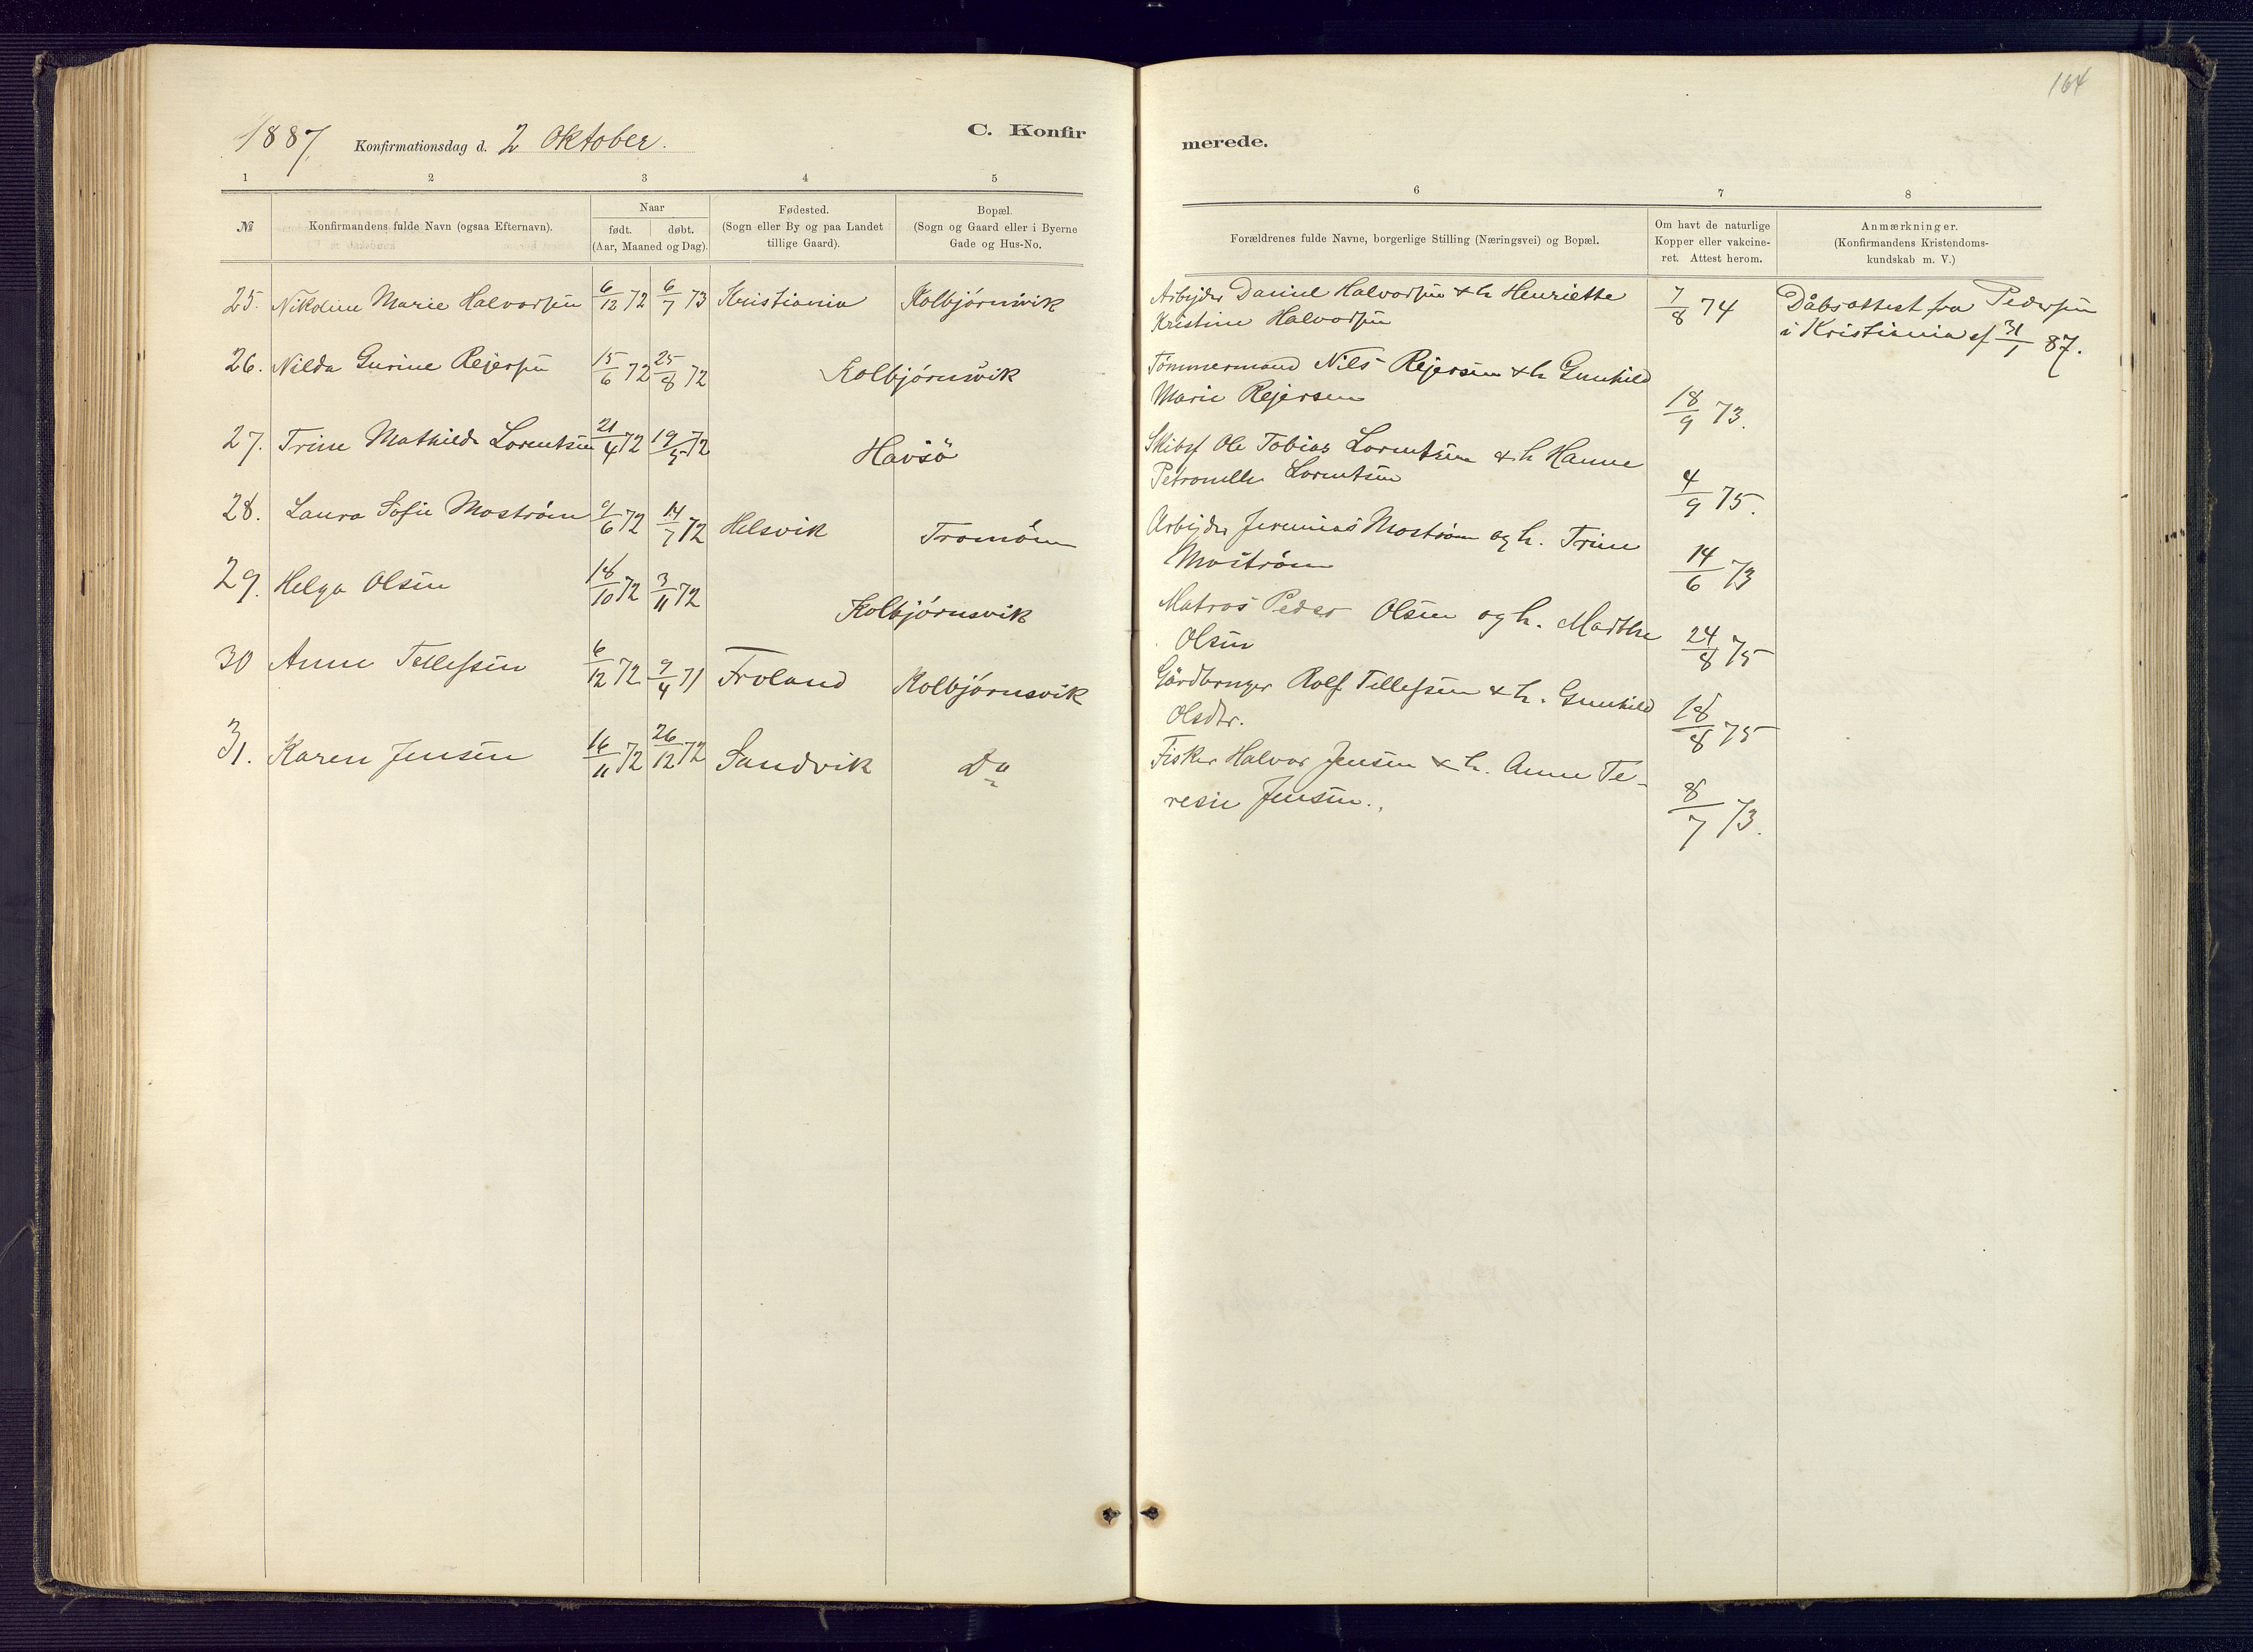 164
1887. Konfirmationsdag d. 2 Oktober. C. Konfirmerede.
1 2 3 4 5 6 7 8
№ Konfirmandens fulde Navn (ogsaa Efternavn). Naar født. døbt. (Aar, Maaned og Dag). Fødested. (Sogn eller By og paa Landet tillige Gaard). Bopæl. (Sogn og Gaard eller i Byerne Gade og Hus-No. Forældrenes fulde Navne, borgerlige Stilling (Næringsvei) og Bopæl. Om havt de naturlige Kopper eller vakcineret. Attest herom. Anmærkninger. (Konfirmandens Kristendomskundskab m. V.)
25. Nikoline Marie Halvorsen 6/12 72 6/7 73 Kristiania Kolbjørnsvik Arbejder Daniel Halvorsen & h. Henriette 7/8 74 Dåbsattest fra Pedersen
Kristine Halvorsen i Kristiania af 31/1 87.
26. Nilda Gurine Rejersen 15/6 72 25/8 72 Kolbjørnsvik Tømmermand Nils Rejersen & h. Gunhild
Marie Rejersen 18/9 73.
27. Trine Mathilde Lorentsen 21/4 72 19/5 72 Havsö Skibsf Ole Tobias Lorentsen & h. Hanne
Petronelle Lorentsen 4/9 75.
28. Laura Sofie Moström 9/6 72 14/7 72 Helsvik Tromöen Arbejder Jeremias Moström og h. Trine
Moström 14/6 73
29. Helga Olsen 18/10 72 3/11 72 Kolbjørnsvik Matros Peder Olsen og h. Marthe
Olsen 24/8 75
30 Anne Tellefsen 6/12 72 9/4 71 Froland Kolbjørnsvik Gårdbruger Rolf Tellefsen & h. Gunhild
Olsdtr. 18/8 75
31. Karen Jensen 16/11 72 26/12 72 Sandvik Do Fisker Halvor Jensen & h. Anne Te-
resie Jensen. 8/7 73.